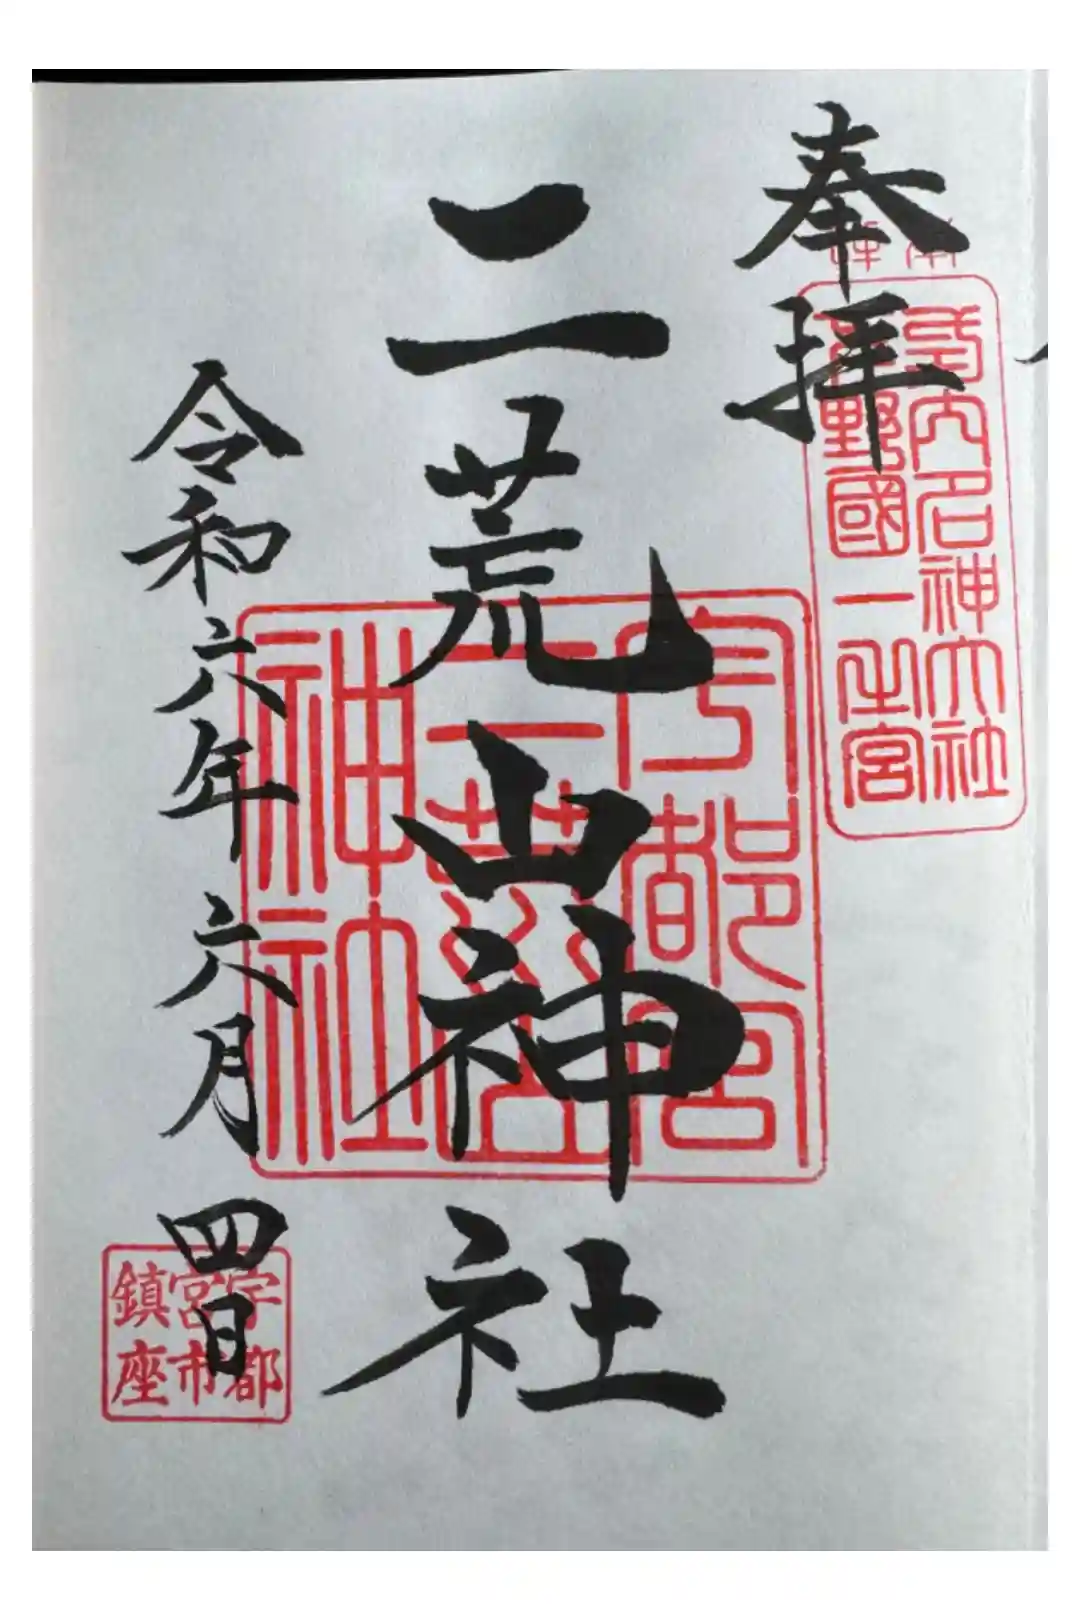 奉拝
式内名神大社
下野國一之宮
二荒山神社
宇都宮
二荒山
神社
令和六年六月四日
宇都
宮市
鎮座